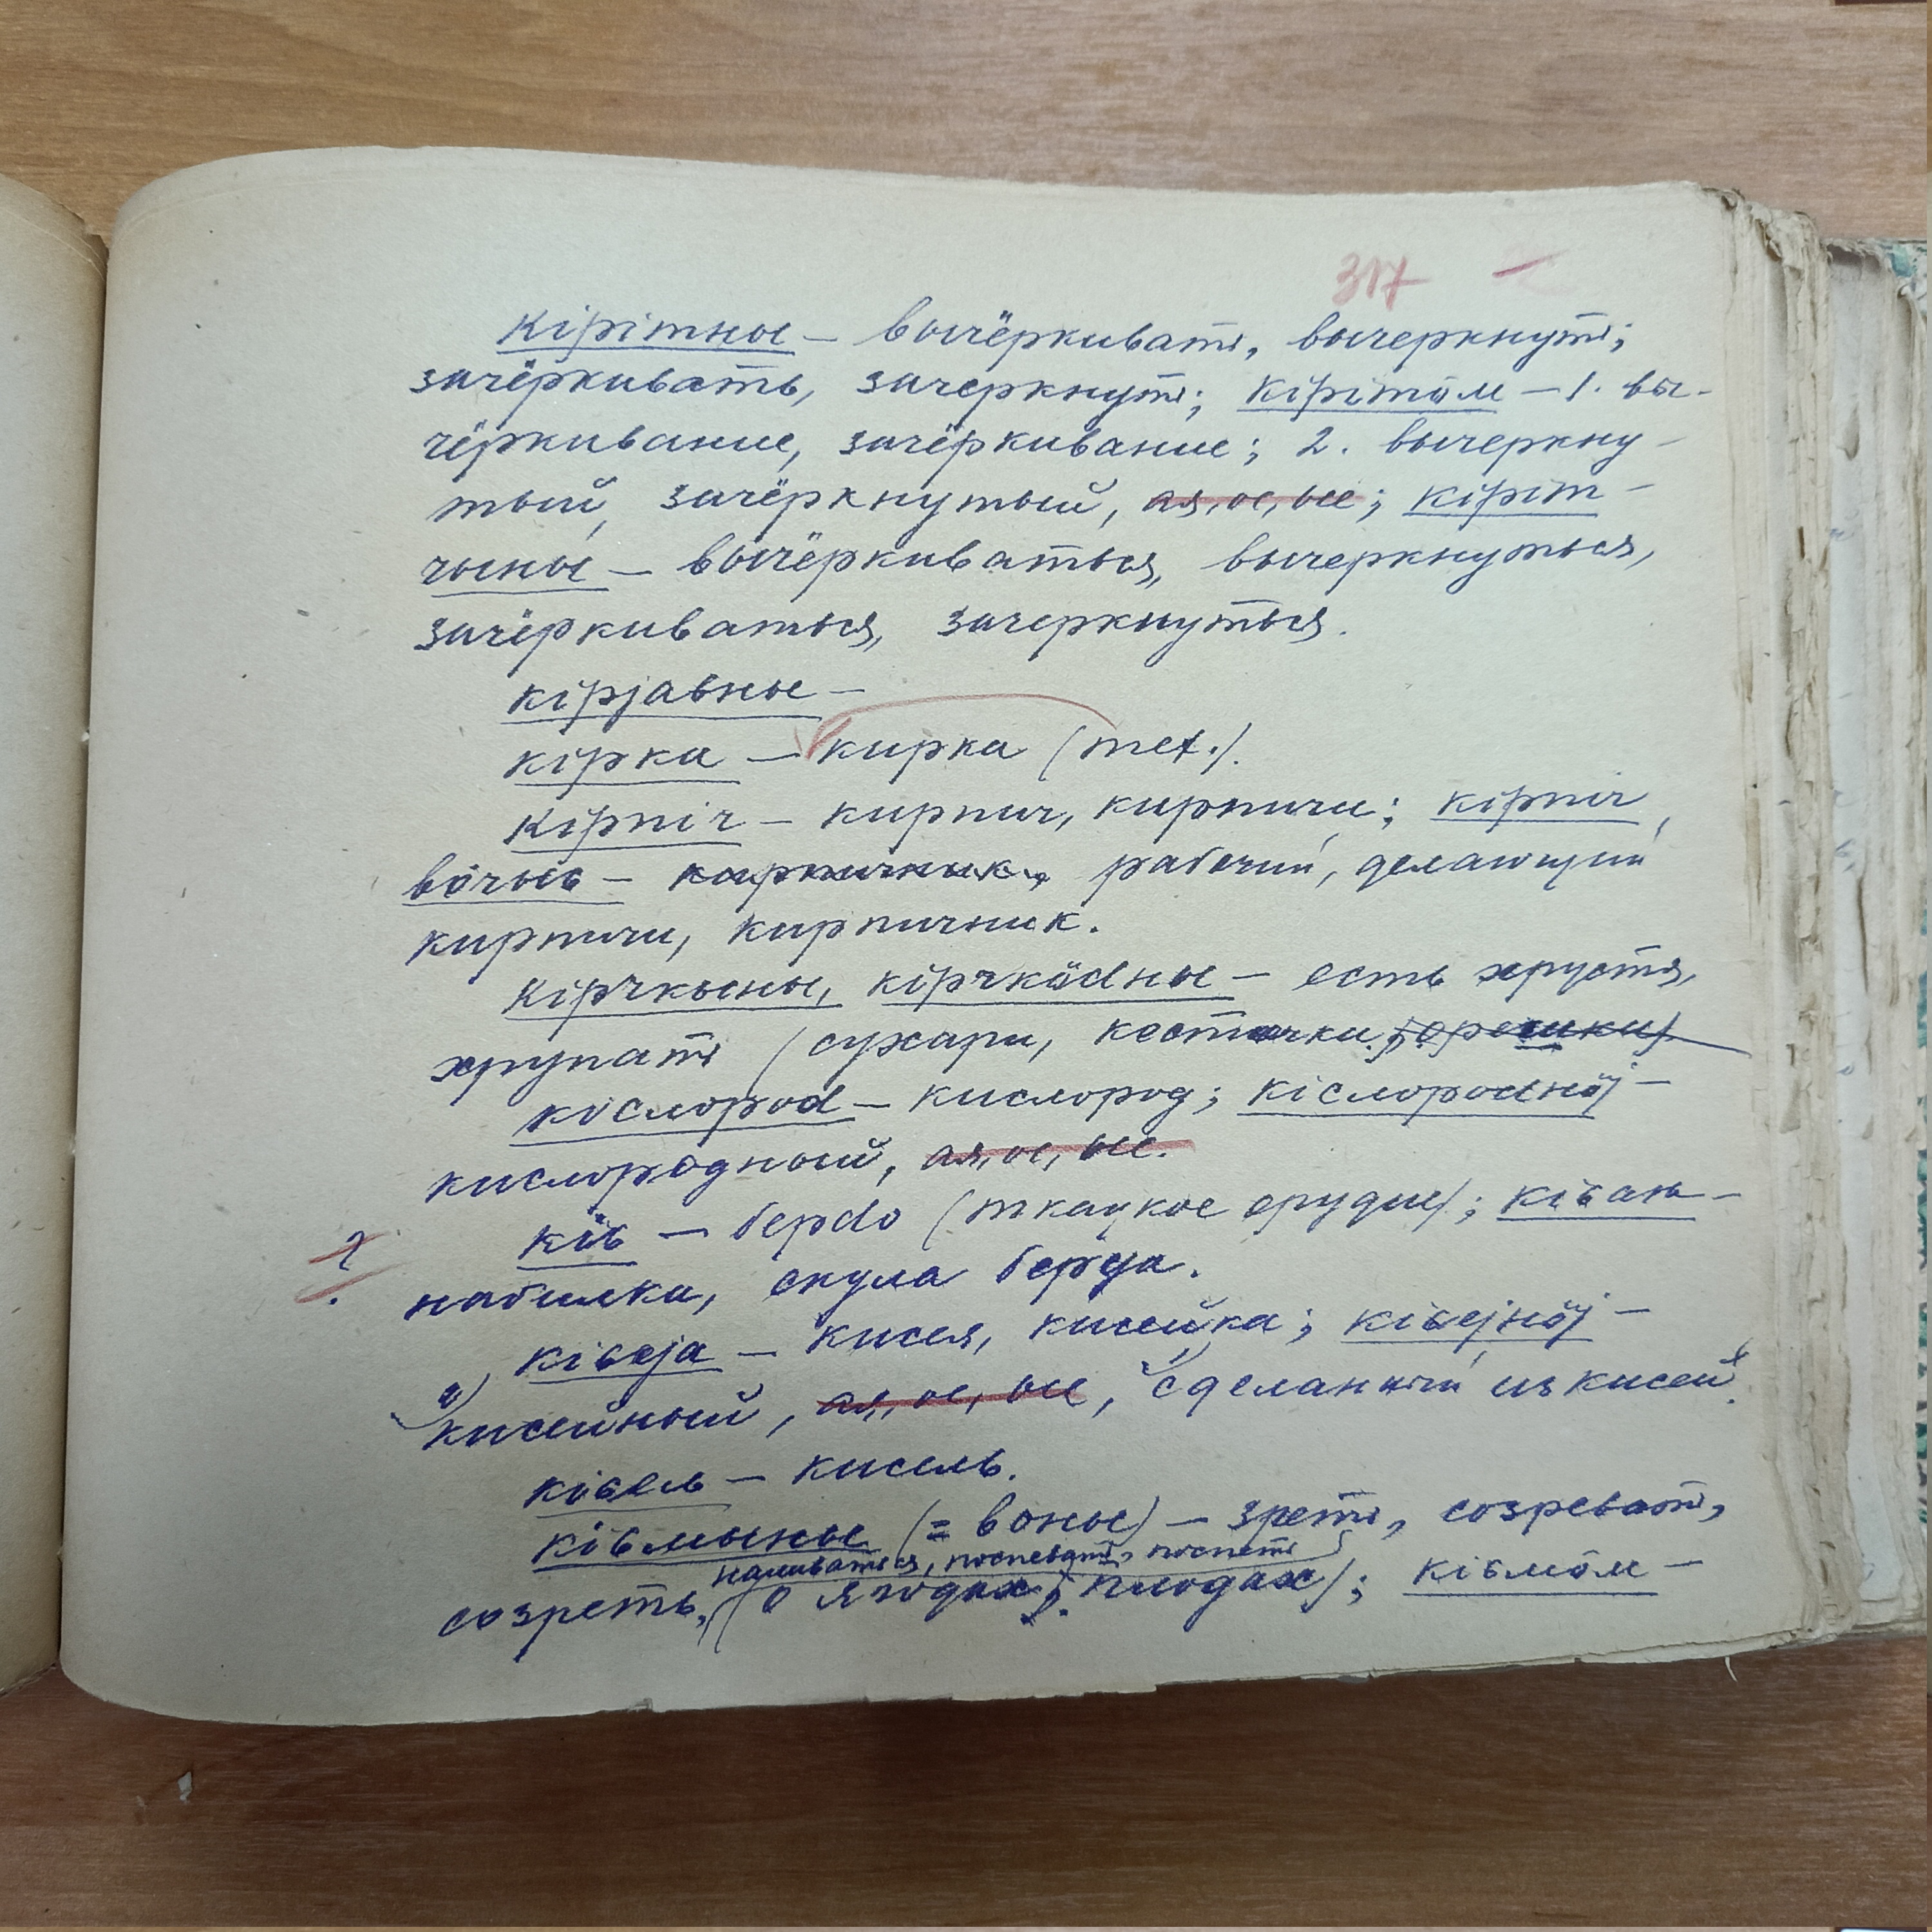 317
кірітны – вычёркивать, вычеркнуть;
зачёркивать, зачеркнуть; кірітӧм – 1. вы-
чёркивание, зачёркивание; 2. вычеркну-
тый, зачёркнутый, ая, ое, ые; кіріт-
чыны – вычёркиваться, вычеркнуться,
зачёркиваться, зачеркнуться.
кірјавны –
кірка – кирка (тех.).
кірпіч – кирпич, кирпичи; кірпіч
вӧчыԍ – кирпичник, рабочий, делающий
кирпичи, кирпичник.
кірчкыны, кірчкӧdны – есть хрустя,
хрупать (сухари, косточки, орешки)
кіслород – кислород; кіслороднӧј –
кислородный, ая, ое, ые.
? кіԍ – бердо (ткацкое орудие); кіԍань –
набилка, скула берда.
кіԍеја – кисея, кисейка; кіԍејнӧј –
кисейный, ая, ое, ые, сделанный из кисеи.
кіԍель – кисель.
кіԍмыны (= воны) – зреть, созревать,
наливаться, поспевать, поспеть
созреть, (о ягодах, плодах); кіԍмӧм –